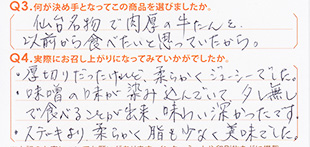 Q3.何が決め手となってこの商品を選びましたか。
仙台名物で肉厚の牛たんを、
以前から食べたいと思っていたから。
Q4.実際にお召し上がりになってみていかがでしたか。
・厚切りだったけれど、柔らかくジューシーでした。
・味噌の味が染み込んでいて、タレ無し
で食べることが出来、味わい深かったです。
・ステーキより、柔らかく脂も少なく美味でした。